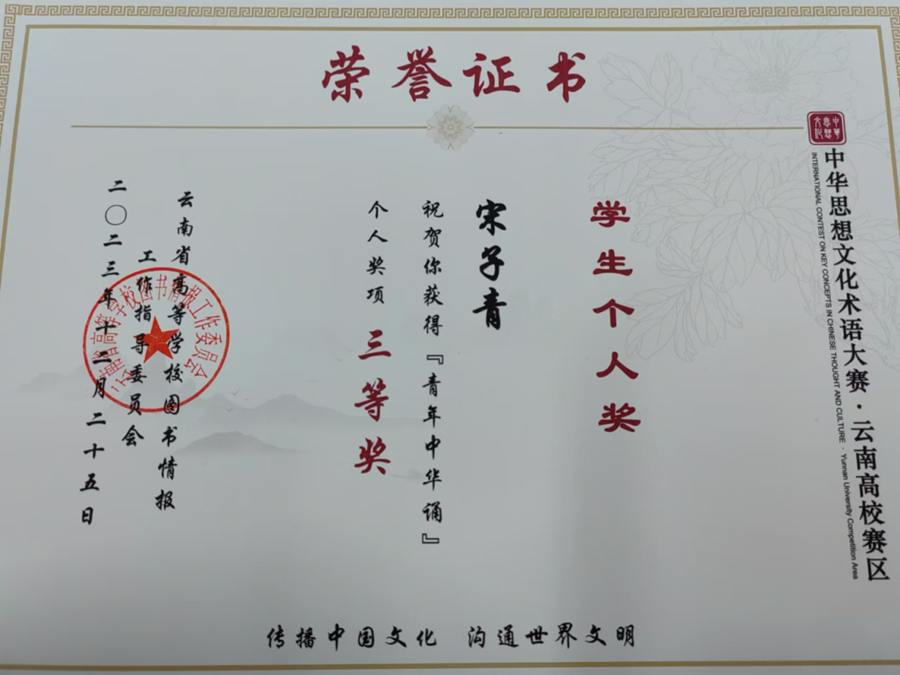 荣誉证书
中华思想文化
中华思想文化术语大赛·云南高校赛区
INTERNATIONAL CONTEST ON KEY CONCEPTS IN CHINESE THOUGHT AND CULTURE · Yunnan University Competition Area
学生个人奖
宋子青
祝贺你获得『青年中华诵』
个人奖项 三等奖
云南省高等学校图书情报
工作指导委员会
二〇二三年十二月二十五日
传播中国文化 沟通世界文明